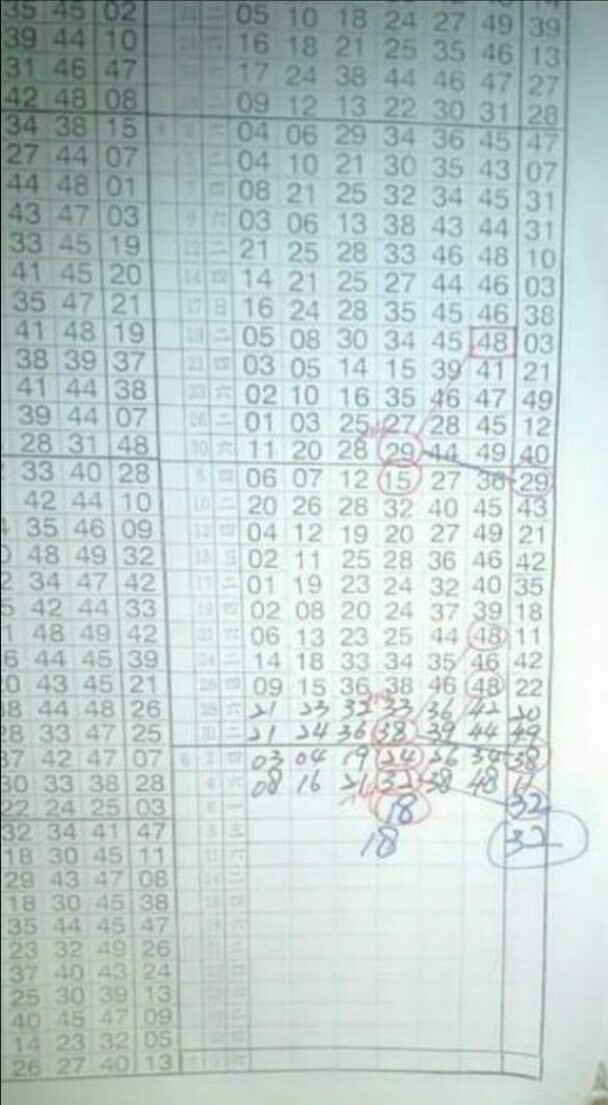 35 45 02 二 05 10 18 24 27 49 39
39 44 10 六 16 18 21 25 35 46 13
31 46 47 一 17 24 38 44 46 47 27
42 48 08 二 09 12 13 22 30 31 28
34 38 15 六 04 06 29 34 36 45 47
27 44 07 二 04 10 21 30 35 43 07
44 48 01 四 08 21 25 32 34 45 31
43 47 03 六 03 06 13 38 43 44 31
33 45 19 12 二 21 25 28 33 46 48 10
41 45 20 14 四 14 21 25 27 44 46 03
35 47 21 17 日 16 24 28 35 45 46 38
41 48 19 19 二 05 08 30 34 45 48 03
38 39 37 21 四 03 05 14 15 39 41 21
41 44 38 23 六 02 10 16 35 46 47 49
39 44 07 26 二 01 03 25 27 28 45 12
28 31 48 30 六 11 20 28 29 44 49 40
33 40 28 5 四 06 07 12 15 27 36 29
42 44 10 10 二 20 26 28 32 40 45 43
35 46 09 12 四 04 12 19 20 27 49 21
48 49 32 15 日 02 11 25 28 36 46 42
2 34 47 42 17 二 01 19 23 24 32 40 35
5 42 44 33 19 四 02 08 20 24 37 39 18
1 48 49 42 21 六 06 13 23 25 44 48 11
6 44 45 39 24 二 14 18 33 34 35 46 42
0 43 45 21 26 四 09 15 36 38 46 48 22
38 44 48 26 28 六 21 23 32 33 36 42 20
28 33 47 25 二 21 24 36 38 39 44 49
37 42 47 07 6 2 四 03 04 19 24 26 34 38
30 33 38 28 4 六 08 16 21 32 38 48
22 24 25 03 一 18 32
32 34 41 47 三 18 32
18 30 45 11 六
29 43 47 08 二
18 30 45 38 四
35 44 45 47 六
23 32 49 26 二
37 40 43 24 四
25 30 39 13
40 45 47 09 二
14 23 32 05
26 27 40 13